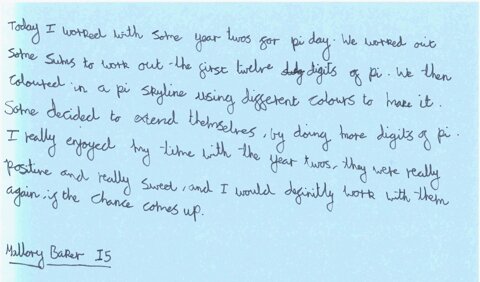 Today I worked with some year twos for pi day. We worked out
some sums to work out the first twelve digits of pi. We then
coloured in a pi skyline using different colours to make it.
Some decided to extend themselves, by doing more digits of pi.
I really enjoyed my time with the year twos, they were really
positive and really sweet, and I would definitly work with them
again, if the chance comes up.
Mallory Baker I5